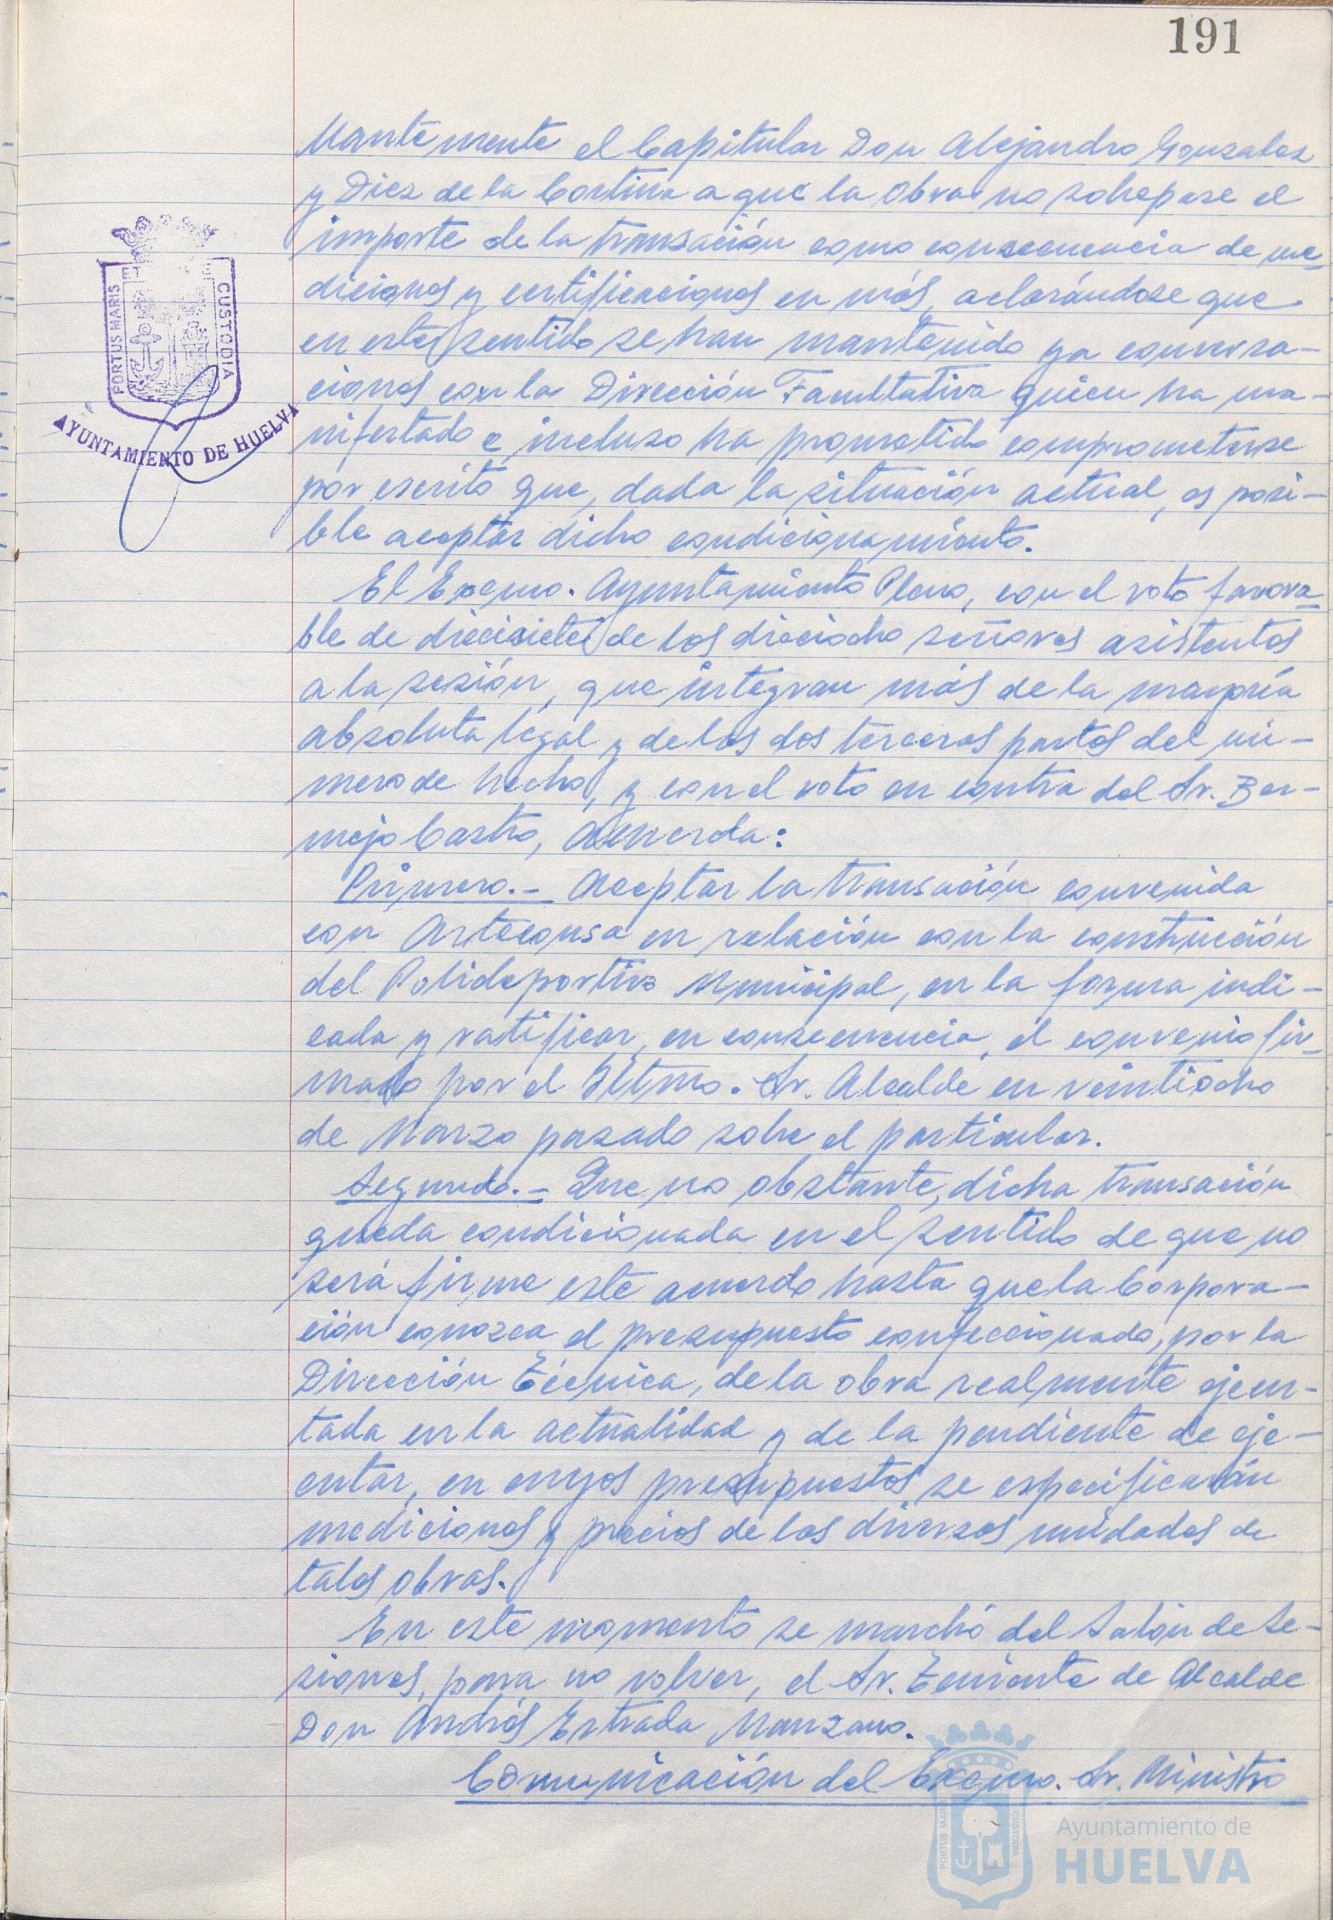 191
PORTUS MARIS ET CUSTODIA
AYUNTAMIENTO DE HUELVA
Mantemente el Capitular Don Alejandro Gonzalez
y Diez de la Cortina a que la obra no sobrepase el
importe de la transación como consecuencia de me-
diciones y certificaciones en más, aclarándose que
en este sentido se han mantenido ya conversa-
ciones con la Dirección Facultativa quien ha ma-
nifestado e incluso ha prometido comprometerse
por escrito que, dada la situación actual, es posi-
ble aceptar dicho condicionamiento.
El Excmo. Ayuntamiento Pleno, con el voto favora-
ble de diecisiete de los dieciocho señores asistentes
a la sesión, que integran más de la mayoría
absoluta legal y de las dos terceras partes del nú-
mero de hecho, y con el voto en contra del Sr. Ber-
mejo Castro, acuerda:
Primero.- Aceptar la transación convenida
con Arteconsa en relación con la construcción
del Polideportivo Municipal, en la forma indi-
cada y ratificar, en consecuencia, el convenio fir-
mado por el Iltmo. Sr. Alcalde en veintiocho
de Marzo pasado sobre el particular.
Segundo.- Que, no obstante, dicha transación
queda condicionada en el sentido de que no
será firme este acuerdo hasta que la Corpora-
ción conozca el presupuesto confeccionado, por la
Dirección Técnica, de la obra realmente ejecu-
tada en la actualidad y de la pendiente de eje-
cutar, en cuyos presupuestos se especificarán
mediciones y precios de las diversas unidades de
tales obras.
En este momento se marchó del Salón de Se-
siones, para no volver, el Sr. Teniente de Alcalde
Don Andrés Estrada Manzano.
Comunicación del Excmo. Sr. Ministro
PORTUS MARIS CUSTODIA
Ayuntamiento de
HUELVA